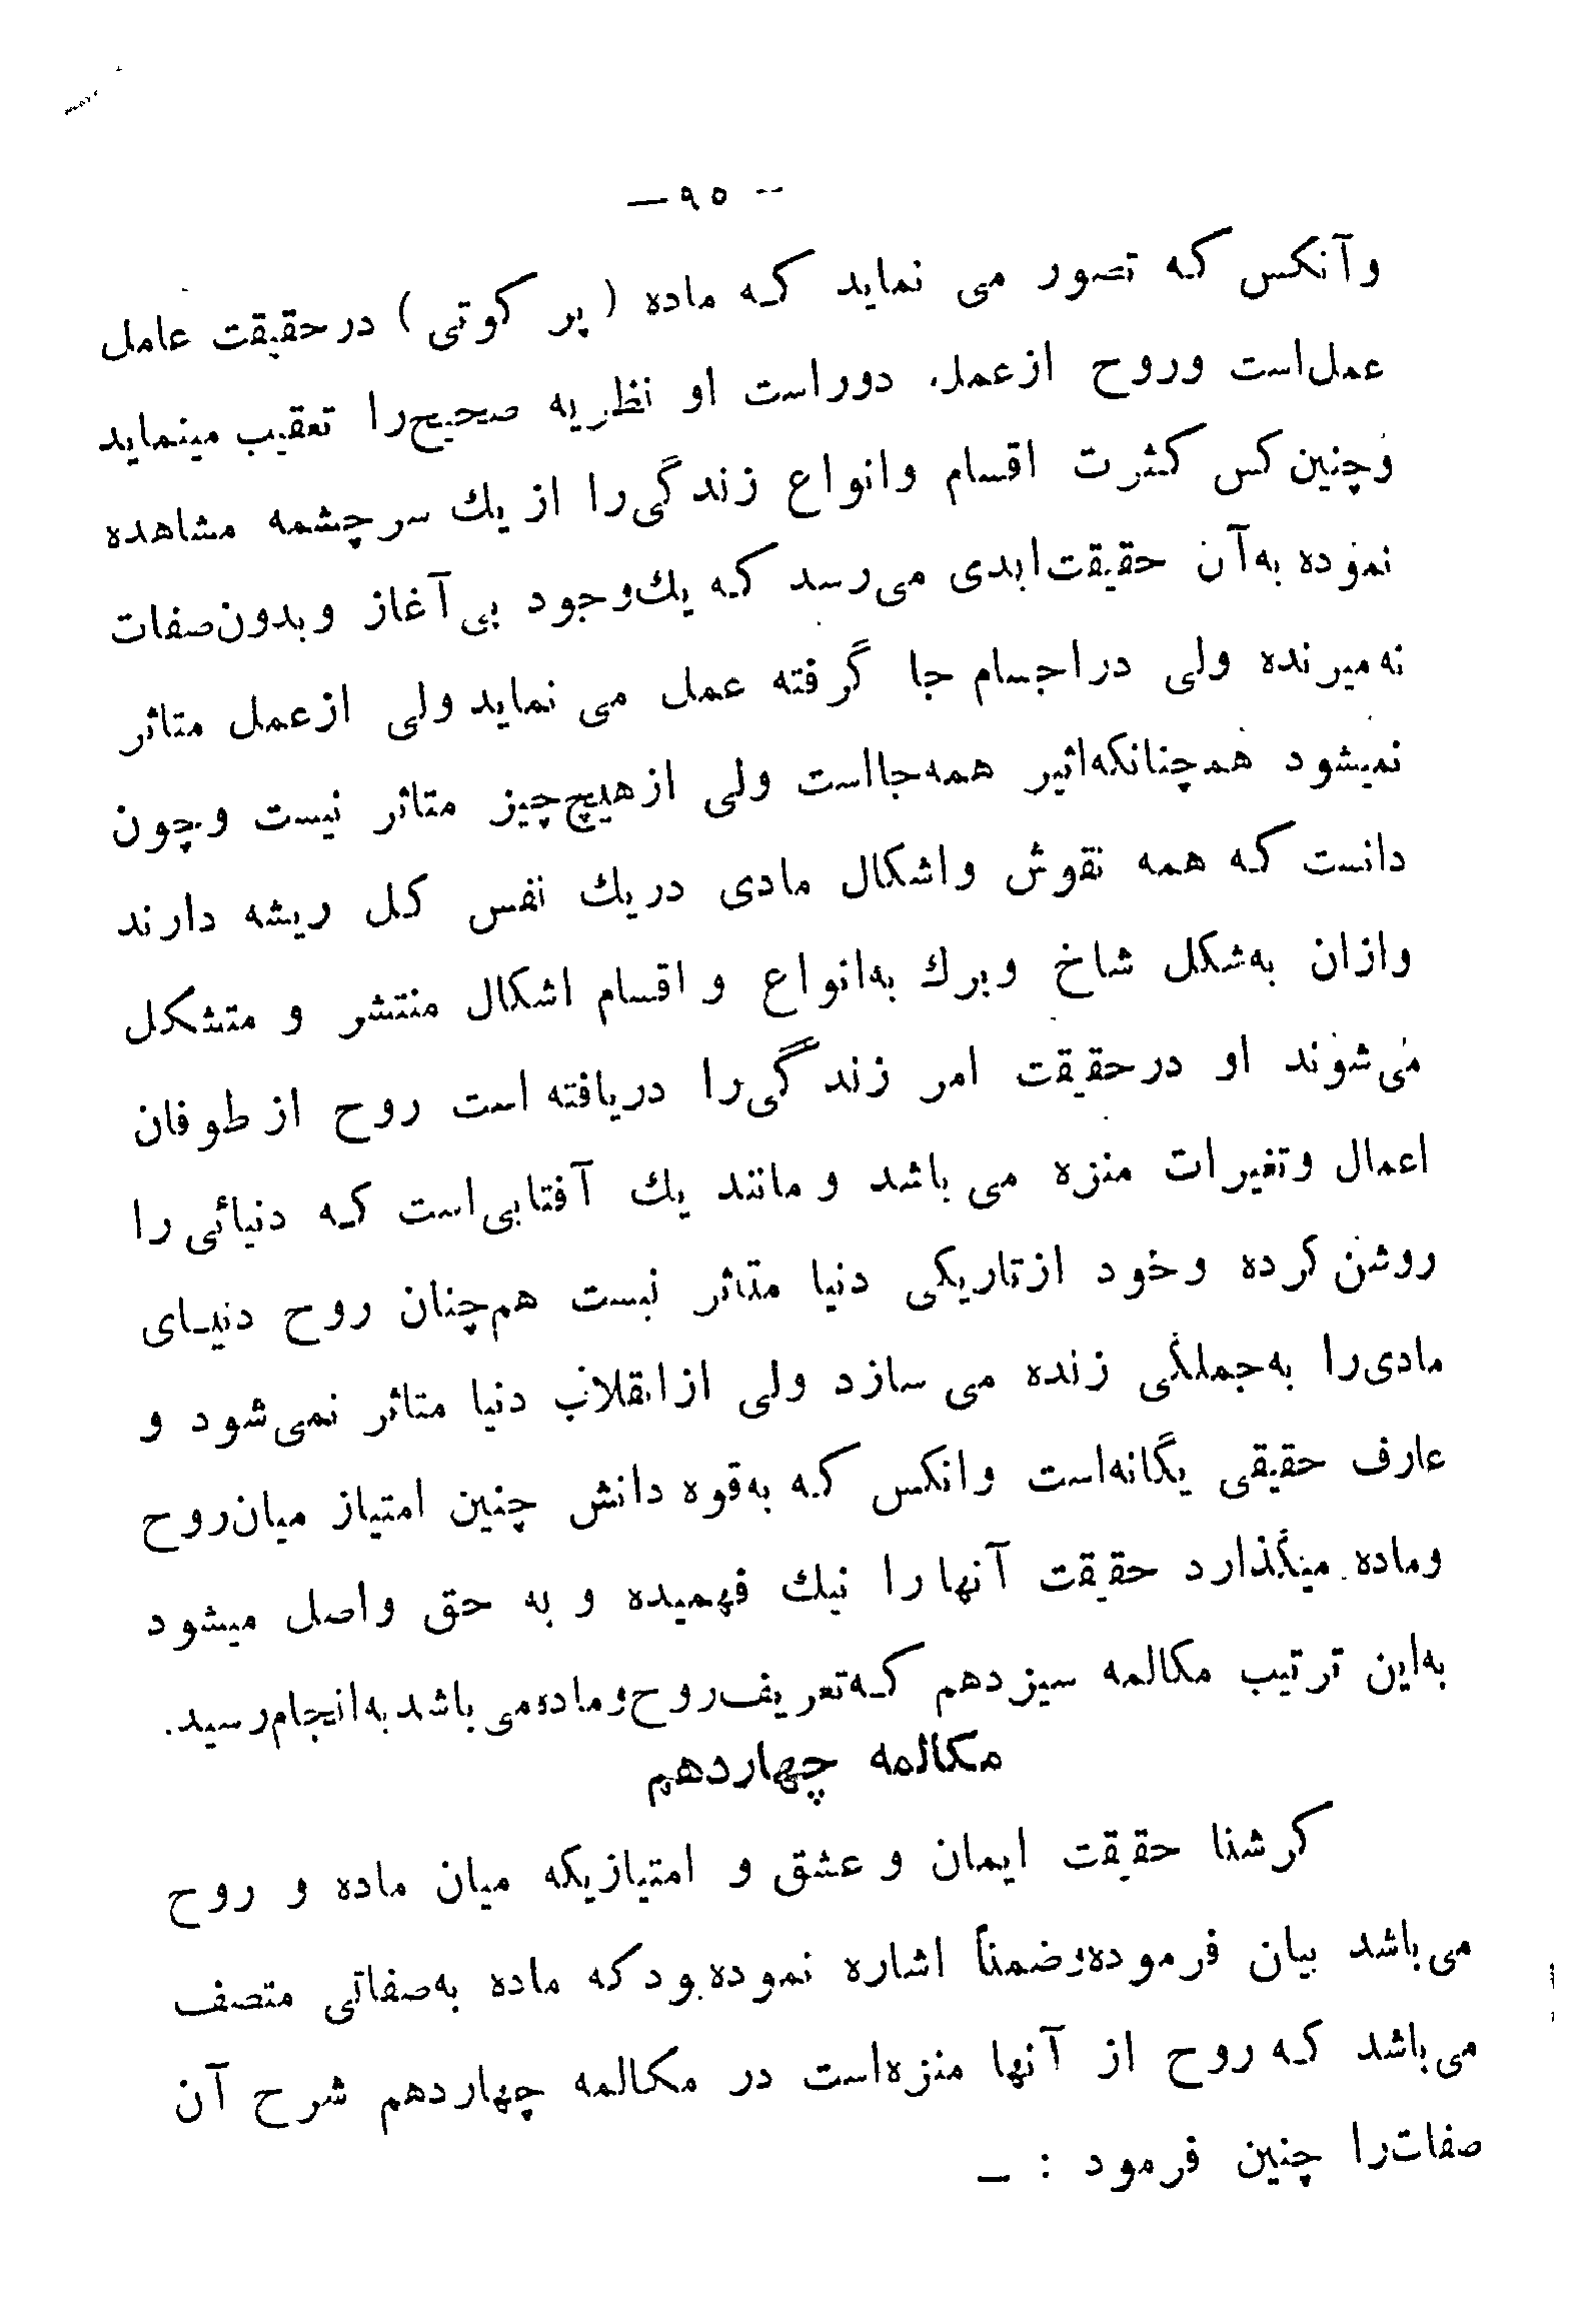 — ۹۵ —
وآنکس که تصور می نماید که ماده ( پر کوتی ) درحقیقت عامل
عمل‌است وروح ازعمل دوراست او نظریه صحیح‌را تعقیب مینماید
وچنین کس کثرت اقسام وانواع زندگی‌را از یك سرچشمه مشاهده
نموده به‌آن حقیقت‌ابدی می‌رسد که یك‌وجود بی‌آغاز وبدون‌صفات
نه‌میرنده ولی دراجسام جا گرفته عمل می نماید ولی ازعمل متاثر
نمیشود هم‌چنانکه‌اثیر همه‌جااست ولی ازهیچ‌چیز متاثر نیست وچون
دانست که همه نقوش واشکال مادی دریك نفس کل ریشه دارند
وازان به‌شکل شاخ وبرك به‌انواع و اقسام اشکال منتشر و متشکل
می‌شوند او درحقیقت امر زندگی‌را دریافته است روح از طوفان
اعمال وتغیرات منزه می باشد و مانند یك آفتابی‌است که دنیائی را
روشن کرده وخود ازتاریکی دنیا متاثر نیست هم‌چنان روح دنیای
مادی‌را به‌جملگی زنده می سازد ولی ازانقلاب دنیا متاثر نمی‌شود و
عارف حقیقی یگانه‌است وانکس که به‌قوه دانش چنین امتیاز میان‌روح
وماده میگذارد حقیقت آنها را نیك فهمیده و به حق واصل میشود
به‌این ترتیب مکالمه سیزدهم که‌تعریف‌روح‌وماده‌می‌باشد به‌انجام‌رسید.
مکالمه چهاردهم
کرشنا حقیقت ایمان و عشق و امتیازیکه میان ماده و روح
می‌باشد بیان فرموده‌وضمناً اشاره نموده‌بود که ماده به‌صفاتی متصف
می‌باشد که روح از آنها منزه‌است در مکالمه چهاردهم شرح آن
صفات‌را چنین فرمود : —